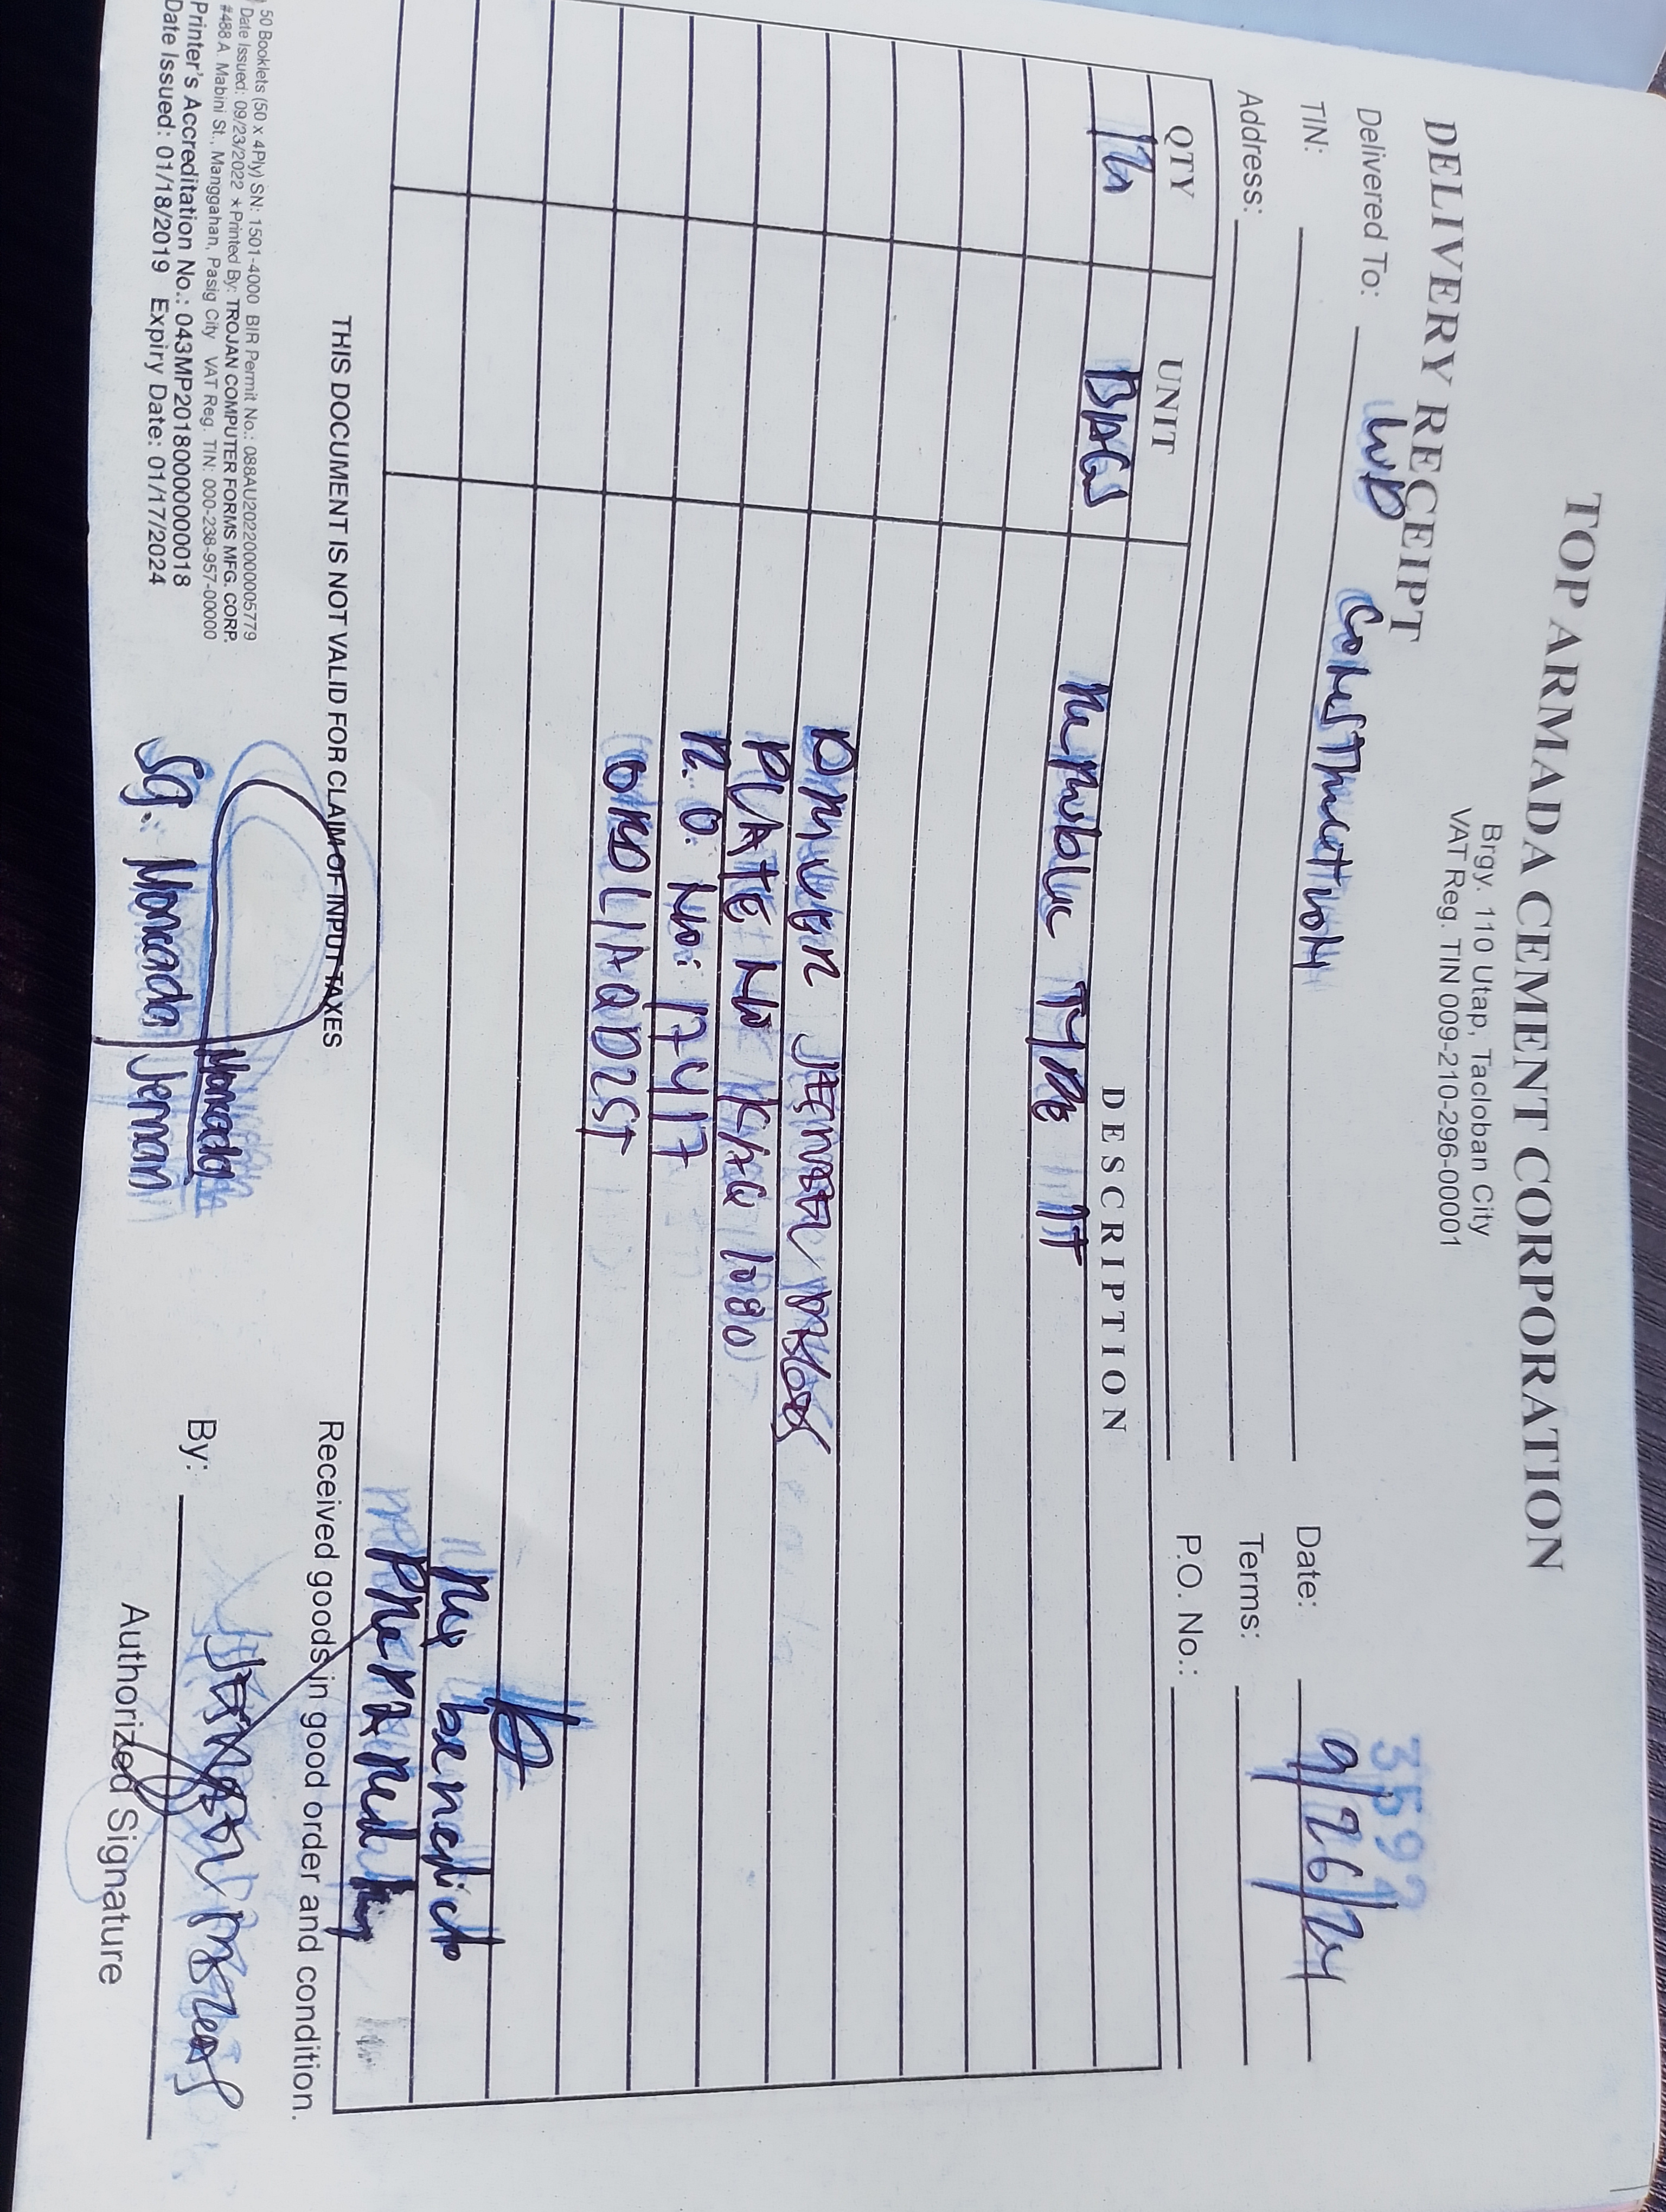 TOP ARMADA CEMENT CORPORATION
Brgy. 110 Utap, Tacloban City
VAT Reg. TIN 009-210-296-00001
DELIVERY RECEIPT
3592
Delivered To: LWD Construction
Date: 9/26/24
TIN:
Terms:
Address:
P.O. No.:
QTY UNIT DESCRIPTION
BAGS Republic Type 1T
Driver
PLATE No KAG 1080
R.O. No: 17417
benedicto
THIS DOCUMENT IS NOT VALID FOR CLAIM OF INPUT TAXES
Received goods in good order and condition.
50 Booklets (50 x 4Ply) SN: 1501-4000 BIR Permit No.: 088AU20220000005779
Date Issued: 09/23/2022 *Printed By: TROJAN COMPUTER FORMS MFG. CORP.
#488 A. Mabini St., Manggahan, Pasig City VAT Reg. TIN: 000-238-957-00000
Printer's Accreditation No.: 043MP20180000000018
Date Issued: 01/18/2019 Expiry Date: 01/17/2024
Moncada
SG. Moncada Jeman
By:
Authorized Signature